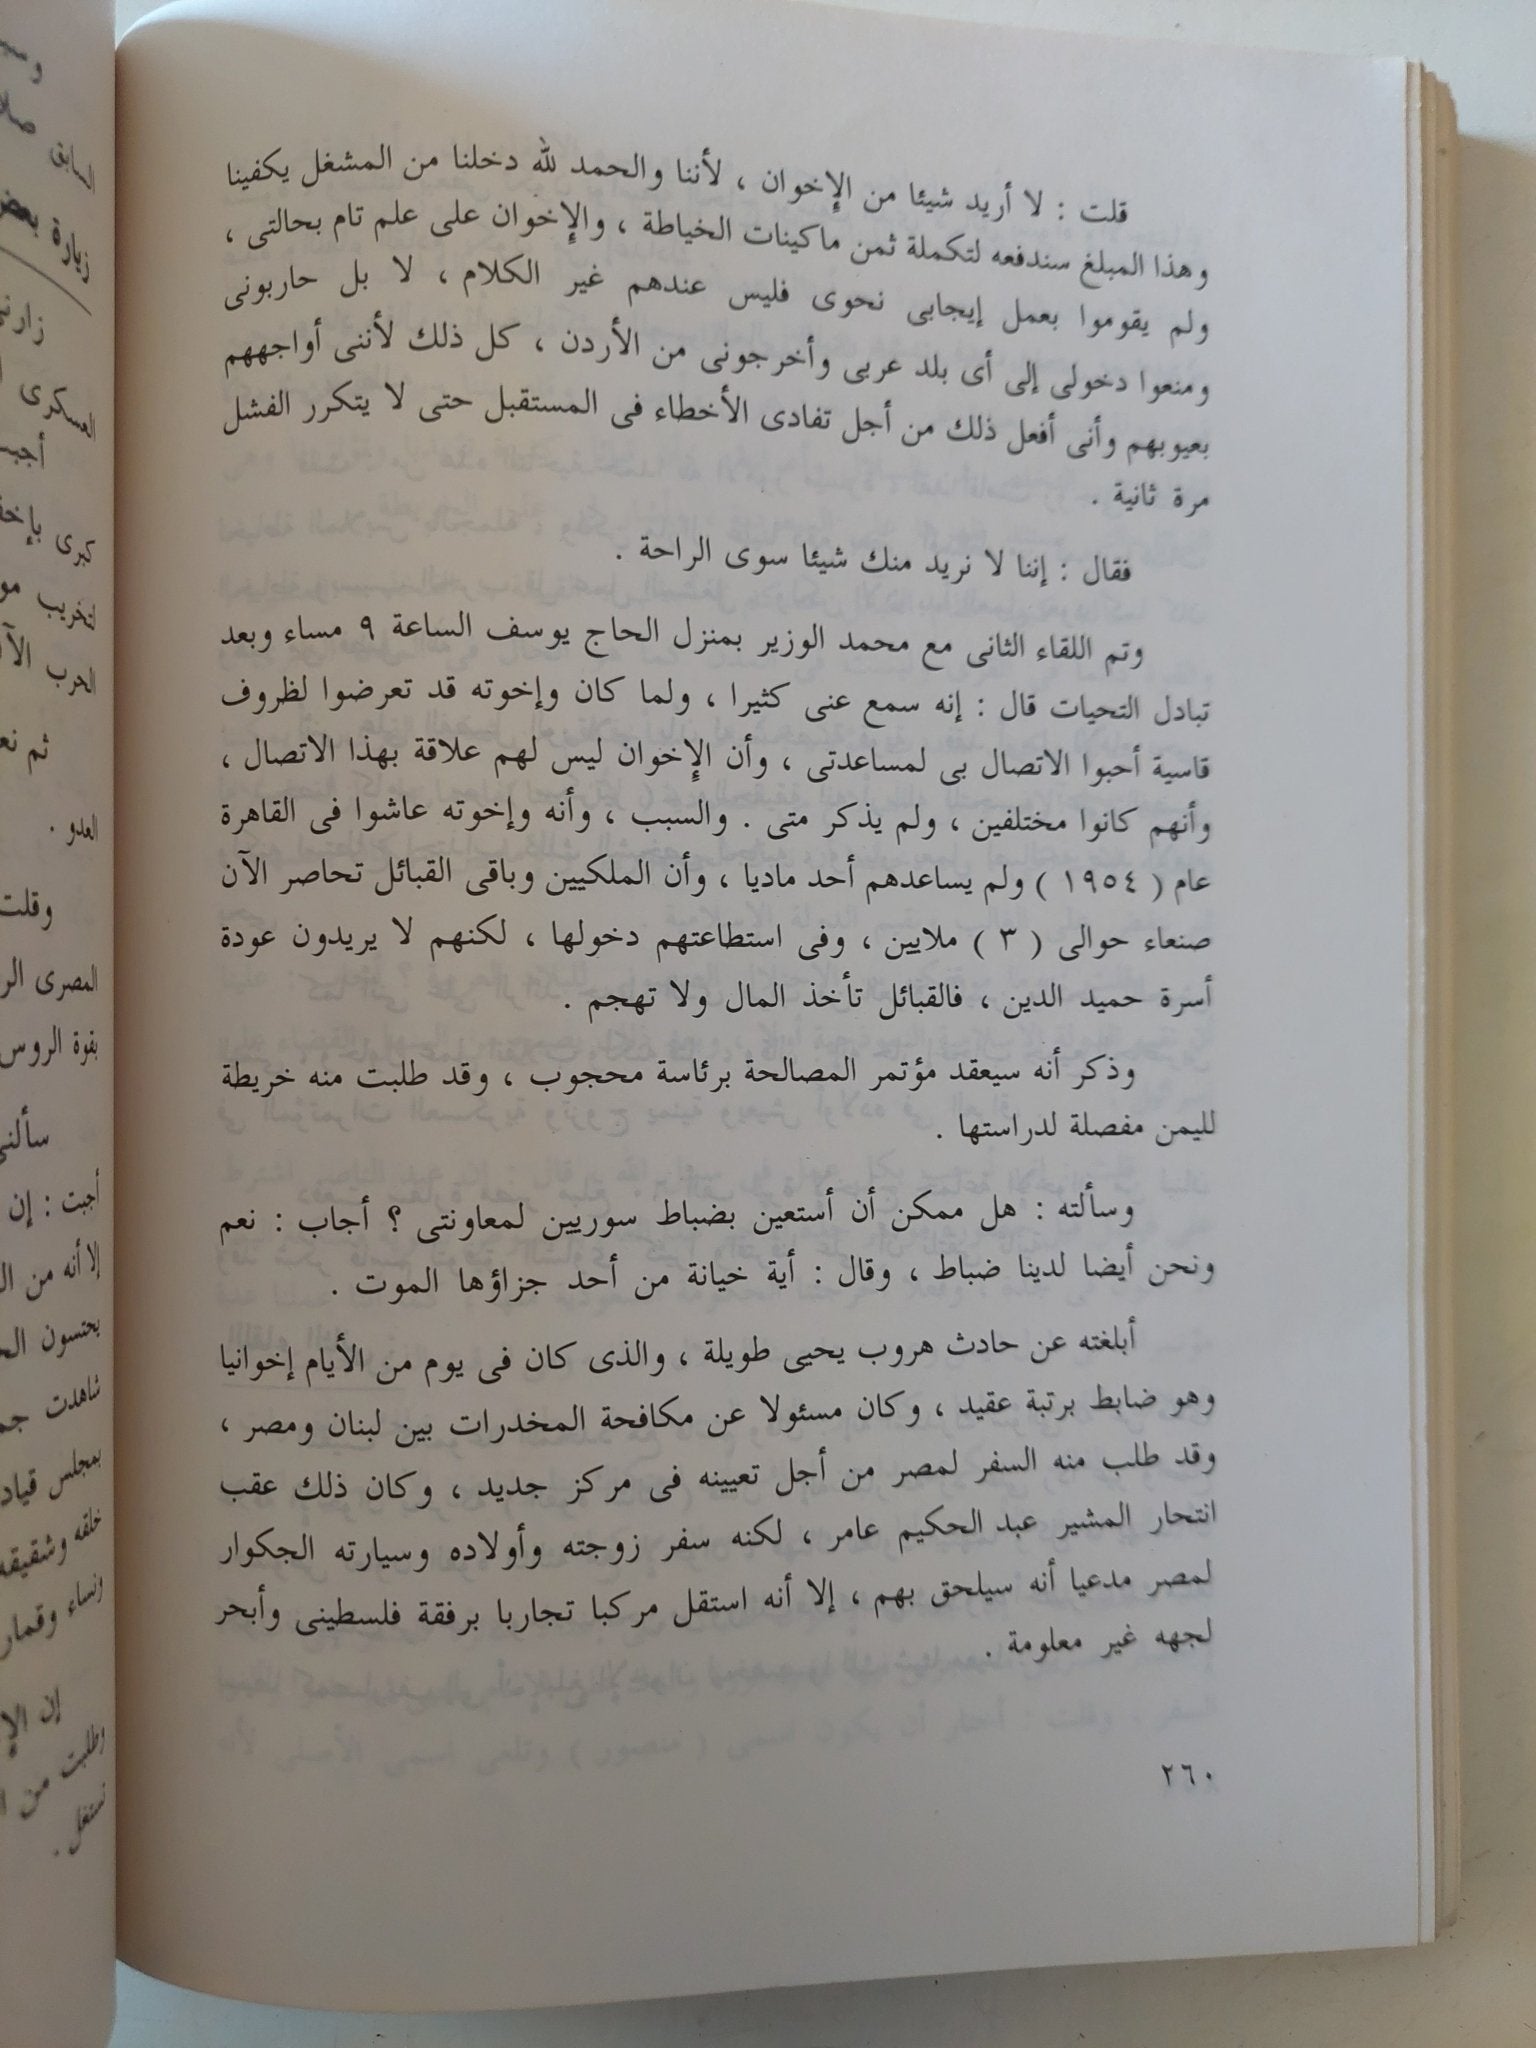 قلت : لا أريد شيئا من الإخوان ، لأننا والحمد لله دخلنا من المشغل يكفينا
وهذا المبلغ سندفعه لتكملة ثمن ماكينات الخياطة ، والإخوان على علم تام بحالتى ،
ولم يقوموا بعمل إيجابى نحوى فليس عندهم غير الكلام ، لا بل حاربونى
ومنعوا دخولى إلى أى بلد عربى وأخرجونى من الأردن ، كل ذلك لأننى أواجههم
بعيوبهم وأنى أفعل ذلك من أجل تفادى الأخطاء فى المستقبل حتى لا يتكرر الفشل
مرة ثانية .
فقال : إننا لا نريد منك شيئا سوى الراحة .
وتم اللقاء الثانى مع محمد الوزير بمنزل الحاج يوسف الساعة ٩ مساء وبعد
تبادل التحيات قال : إنه سمع عنى كثيرا ، ولما كان وإخوته قد تعرضوا لظروف
قاسية أحبوا الاتصال بى لمساعدتى ، وأن الإخوان ليس لهم علاقة بهذا الاتصال ،
وأنهم كانوا مختلفين ، ولم يذكر متى . والسبب ، وأنه وإخوته عاشوا فى القاهرة
عام ( ١٩٥٤ ) ولم يساعدهم أحد ماديا ، وأن الملكيين وباقى القبائل تحاصر الآن
صنعاء حوالى ( ٣ ) ملايين ، وفى استطاعتهم دخولها ، لكنهم لا يريدون عودة
أسرة حميد الدين ، فالقبائل تأخذ المال ولا تهجم .
وذكر أنه سيعقد مؤتمر المصالحة برئاسة محجوب ، وقد طلبت منه خريطة
لليمن مفصلة لدراستها .
وسألته : هل ممكن أن أستعين بضباط سوريين لمعاونتى ؟ أجاب : نعم
ونحن أيضا لدينا ضباط ، وقال : أية خيانة من أحد جزاؤها الموت .
أبلغته عن حادث هروب يحيى طويلة ، والذى كان فى يوم من الأيام إخوانيا
وهو ضابط برتبة عقيد ، وكان مسئولا عن مكافحة المخدرات بين لبنان ومصر ،
وقد طلب منه السفر لمصر من أجل تعيينه فى مركز جديد ، وكان ذلك عقب
انتحار المشير عبد الحكيم عامر ، لكنه سفر زوجته وأولاده وسيارته الجكوار
لمصر مدعيا أنه سيلحق بهم ، إلا أنه استقل مركبا تجاربا برفقة فلسطينى وأبحر
لجهه غير معلومة .
٢٦٠
السابق
زيارة بعض
العسكرى
كبرى
لتخريب
الحرب
ثم
العدو .
وقلت
المصرى
بقوة الروس
أجبت : إن
إلا أنه من
شاهدت
خلفه وشقيقه
إن
وطلبت من